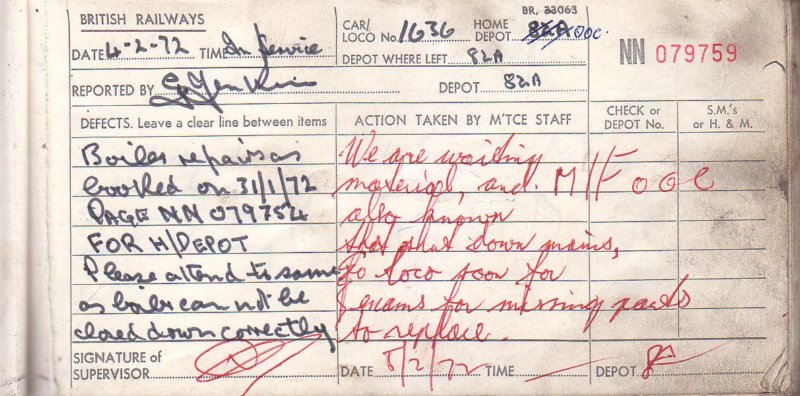 BR. 33063
BRITISH RAILWAYS
CAR/ LOCO No. 1636 HOME DEPOT 82A OOC.
DATE 4-2-72 TIME In Service
DEPOT WHERE LEFT 82A
NN 079759
REPORTED BY DEPOT 82A
DEFECTS. Leave a clear line between items
ACTION TAKEN BY M'TCE STAFF
CHECK or DEPOT No.
S.M.'s or H. & M.
Boiler repairs as
booked on 31/1/72
PAGE NN 079754
FOR H/DEPOT
Please attend to same
as boiler can not be
closed down correctly
We are waiting
material, and. M/F OOC
also known
that shut down mains,
to loco soon for
exams for missing parts
to replace.
SIGNATURE of SUPERVISOR
DATE 8/2/72 TIME DEPOT